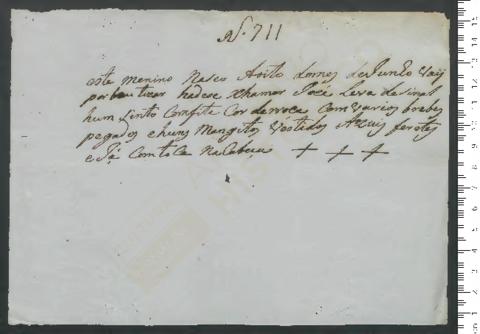 Nº 711
este menino Nasco Aoito do mes de Junho Vaij
por bautizar hadese xhamar José Leva de sinal
hum Sinto Com fita Cor de roza Com varios brebes
pegados e huns Manguitos Vestidos Azuis
e Já Com toCa Na Cabeça + + +